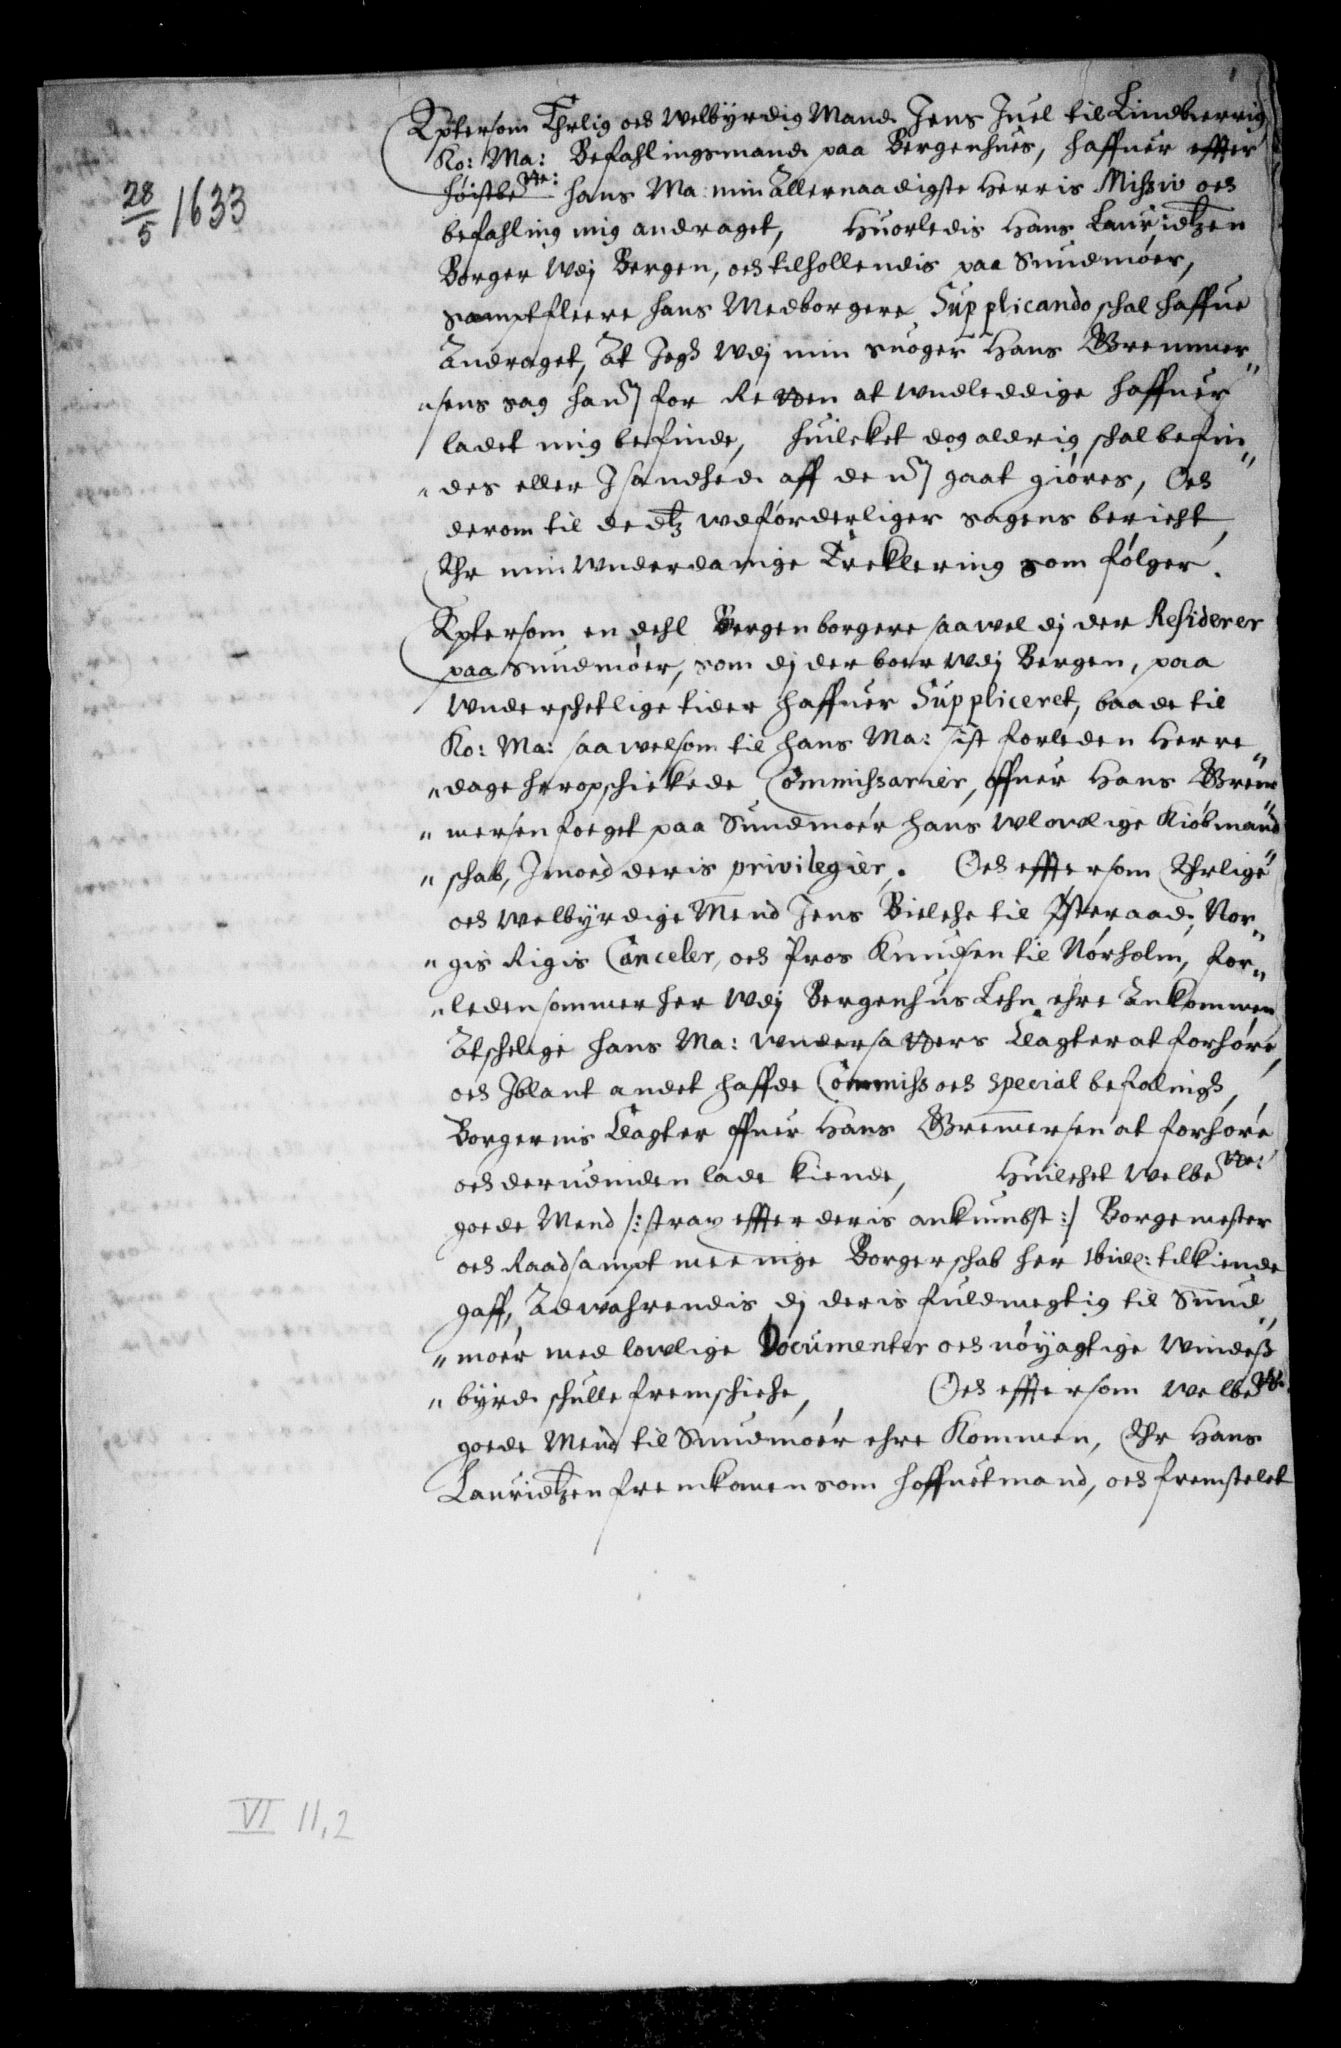 28/5 1633
Epterson Ehrlig och Welbyrdig Mand Jens Juel til Lindbierrig
Ko: Ma: Befahlingsmand paa Bergenhuus, haffuer effter
høistbete: hans Ma: min Allernaadigste Herris Missiv och
befahling mig andraget, Huorledis Hans Lauridtzen
Borger wdj Bergen, och tilhollendis paa Sundmøer,
sampt fleere hans Medborgere Supplicando schal haffue
Andraget, At Jegh wdj min suoger Hans Bremmer„
„sens sag hannd for Retten at wndleddige haffuer
ladet mig befinde, huilcket dog aldrig schal befin„
„des eller J sandhed aff dennd gaat giøres, Och
derom til dedtz wdførderliger sagens bericht,
Ehr min wnderdanige Ercklering som følger.
Eptersom en dehl Bergen borgere saa wel dj der Residerer
paa Sundmøer, som dj der boer wdj Bergen, paa
wnderschetlige tider haffuer Suppliceret, baade til
Ko: Ma: saa welsom til hans Ma: sist forleden Herre„
„dage heropschickede Commissarier, offuer Hans Brem
„mersen foeget paa Sundmøer hans wlowlige Kiøbmand
„schab, Jmoed deris privilegier. Och efftersom Ehrlige
och welbyrdige Mend Jens Bielche til Østeraad, Nor„
„gis Rigis Canceler, och Pros Knudsen til Nørholm, for„
„leden sommer her wdj Bergenhus Lehn ehre Ankommen
Atschelige hans Ma: wndersatters Clagter at forhøre,
och Jblant andet haffde Commiss och special befalingh,
Borgernis Clagter offuer Hans Bremmersen at forhøre
och derudinden lade kiende, Huilchet welbete:
goede Mend /: strax effter deris ankumbst :/ Borgemester
och Raad sampt meenige Borgerschab her ibid: tilkiende
gaff, Adwahrendis dj deris fuldmegtig til Sund„
„møer med lowlige Documenter och nøyagtige windeß
„byrd schulle fremschiche, Och efftersom welbete
goede Mend til Sundmøer ehre Kommen, Ehr Hans
Lauridtzen fremkomen som hoffuetmand, och fremstelet
VI 11,2